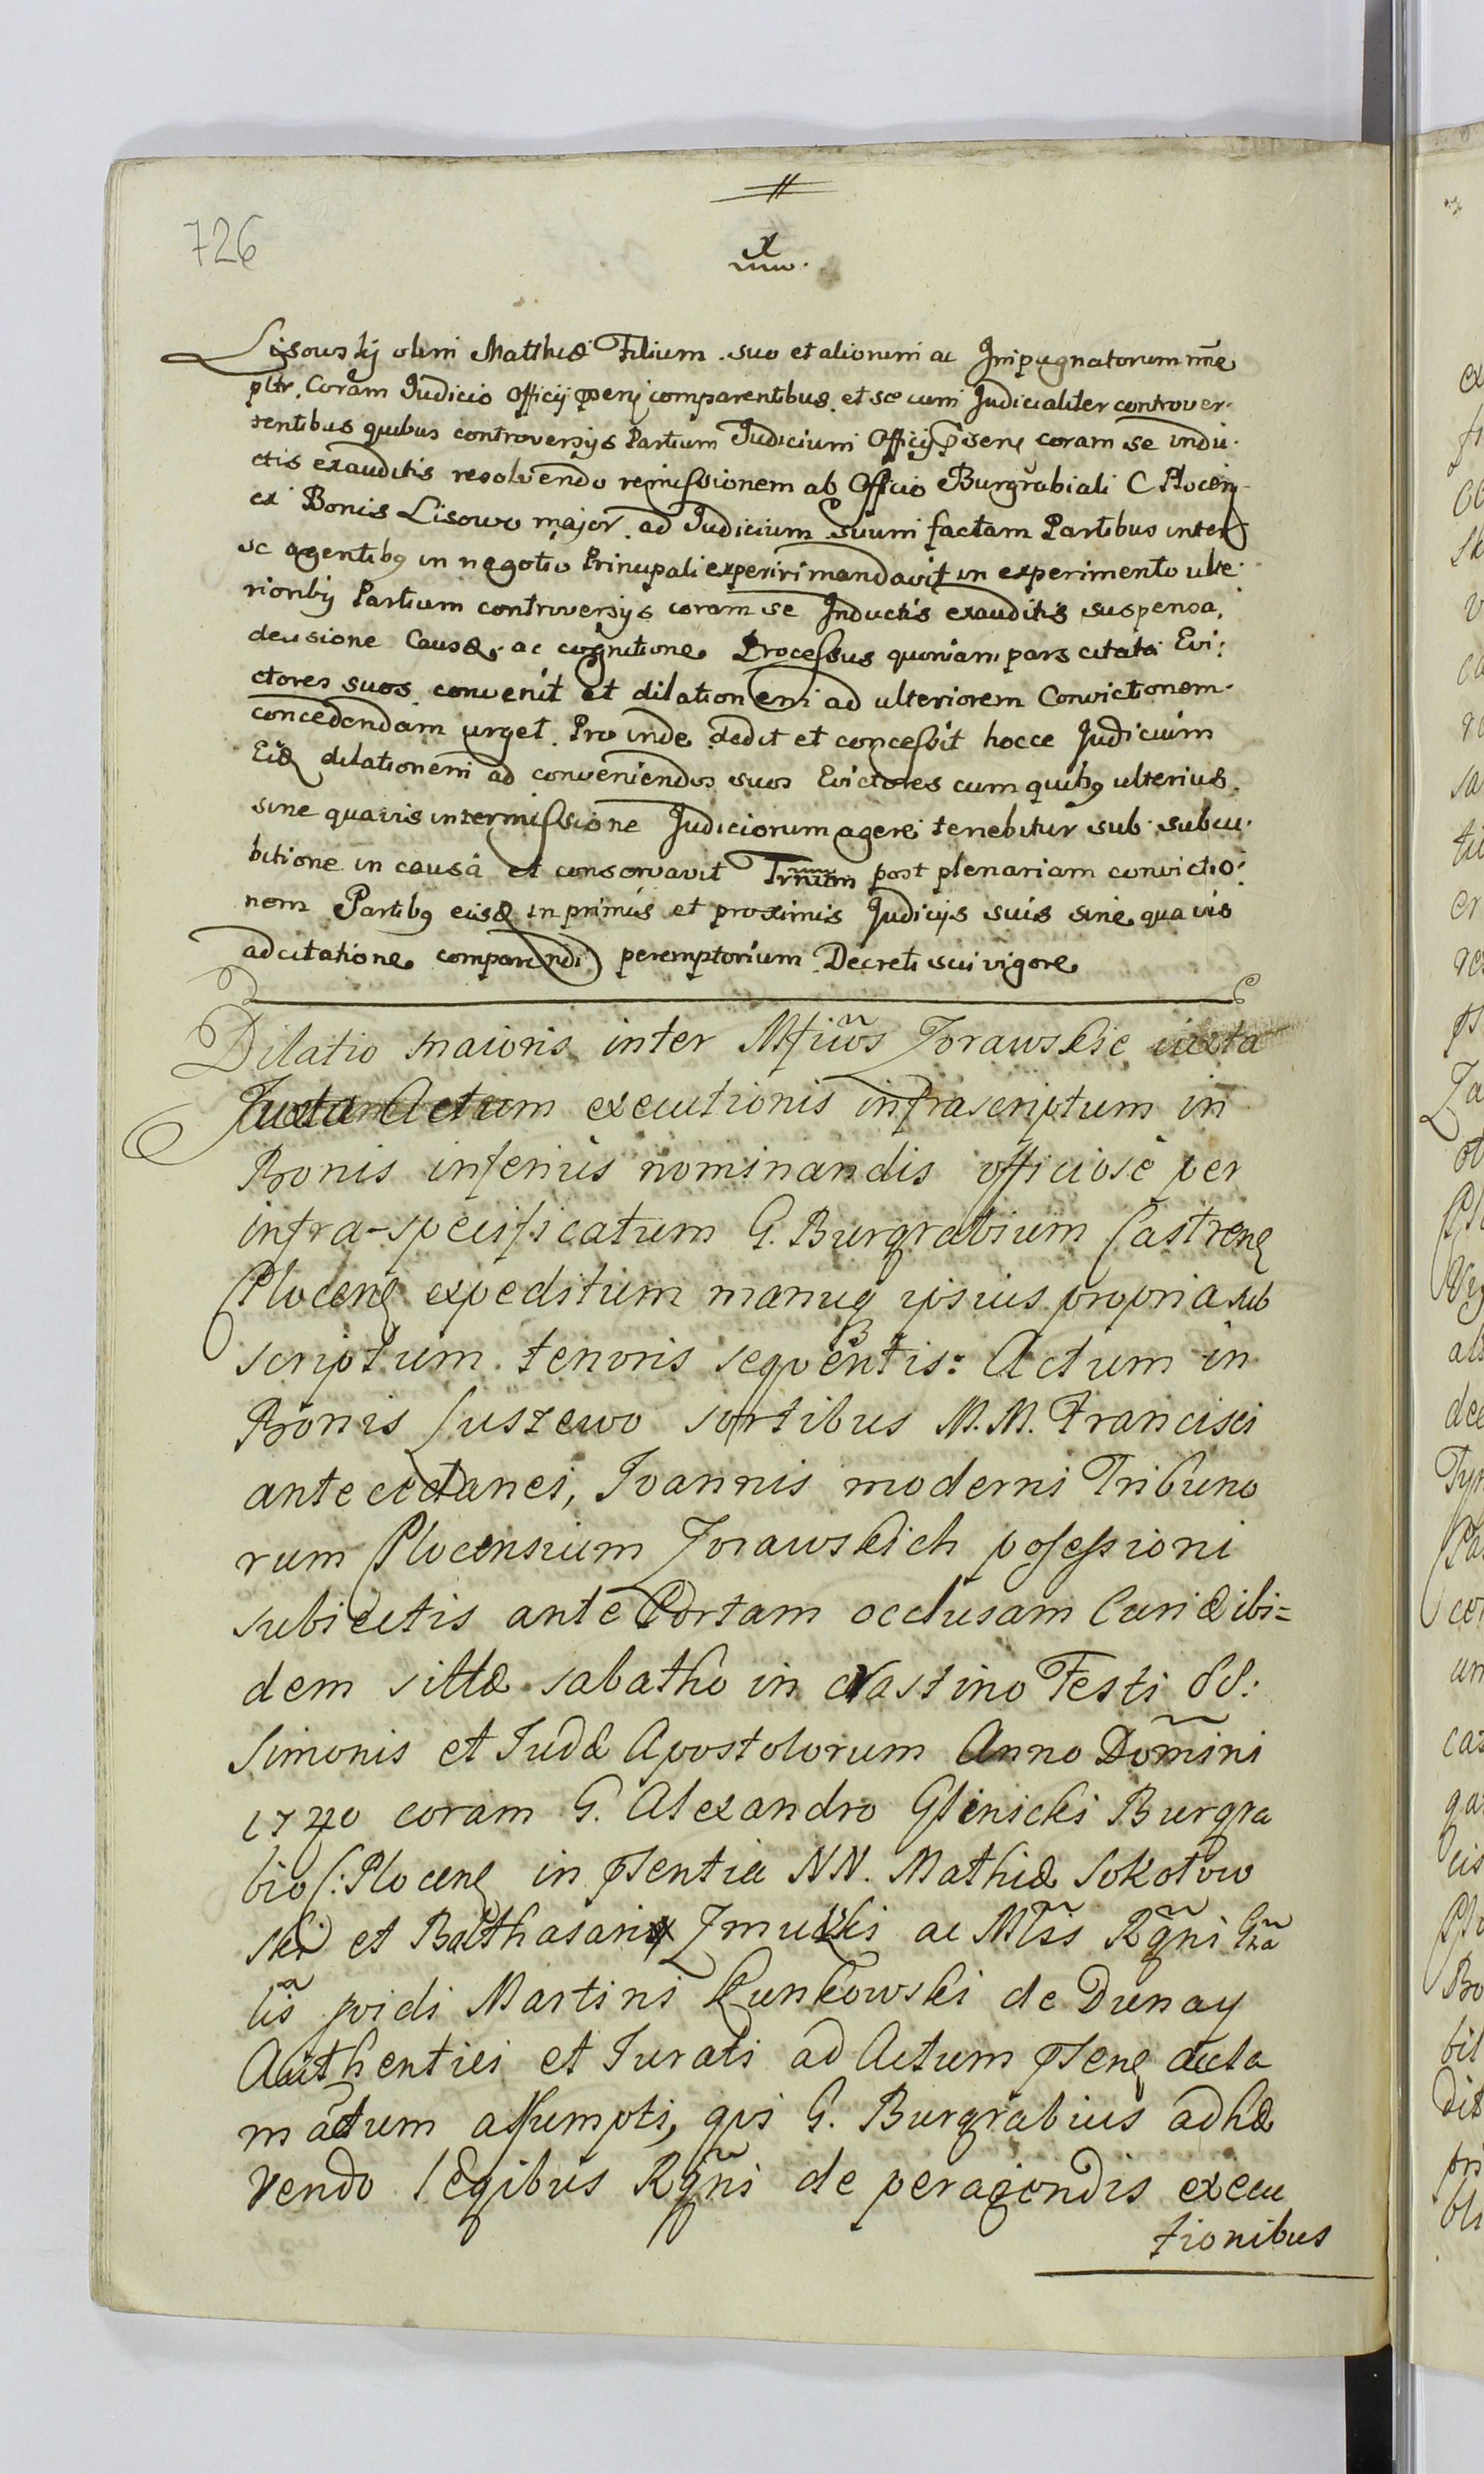 726
Lisowskj olim Matthiæ Filium. suo et aliorum ac Impugnatorum nñe
pltr. Coram Judicio Officij Pserij comparentibus et secum Judicialiter controver.
tentibus quibus controversijs Partium Judicium Officij Psens coram se indu.
ctis exauditis resolvendo remissionem ab Officio Burgrabiali C Plocen
ex Bonis Lisowo major. ad Judicium suum factam Partibus inter
se agentibq in negotio Principali experiri mandavit in experimento ulte.
rioribq Partium controversijs coram se Inductis exauditis suspensa,
decisione Causæ. ac cognitione Processus quoniam pars citata Evi:
ctores suos convenit et dilationem ad ulteriorem Convictionem.
concedendam urget. Pro inde dedit et concessit hocce Judicium
Eidæ dilationem ad conveniendos suos Evictores cum quibq ulterius.
sine quavis intermissione Judiciorum agere tenebitur sub subcu.
bitione in causâ et conservavit Trñum post plenariam convictio:
nem Partibq eisdæ in primis et proximis Judicijs suis sine quavis
adcitatione comparendi peremptorium Decreti sui vigore
Dilatio maioris inter Mfiw̃s Zorawskie iuxta
Juxta Actum executionis infrascriptum in
Bonis inferius nominandis officiosè per
infra-specificatum G. Burgrabium Castrenę
Plocenę expeditum manuq ipsius propria sub
scriptum. tenoris sequentis: Actum in
Bonis Luszewo sortibus M.M. Francisci
antecedanei, Joannis moderni Tribuno
rum Plocensium Zorawskich possessioni
subiectis ante Portam occlusam Curiæ ibi=
dem sittæ sabatho in crastino Festi SS:
Simonis et Judæ Apostolorum Anno Domĩni
1740 coram G. Alexandro Glinicki Burgra
bio C: Plocenę in Psentia NN. Mathiæ Sokołow
ski et Balthasaris Zmudzki ac Mĩss Rgñi Gña
lis̃ pvidi Martini Kunkowski de Dunay
Authentici et Jurati ad Actum Psenę acta
mactum assumpti, qvi G. Burgrabius adhæ
rendo legibus Rgñi de peragendis execu
tionibus